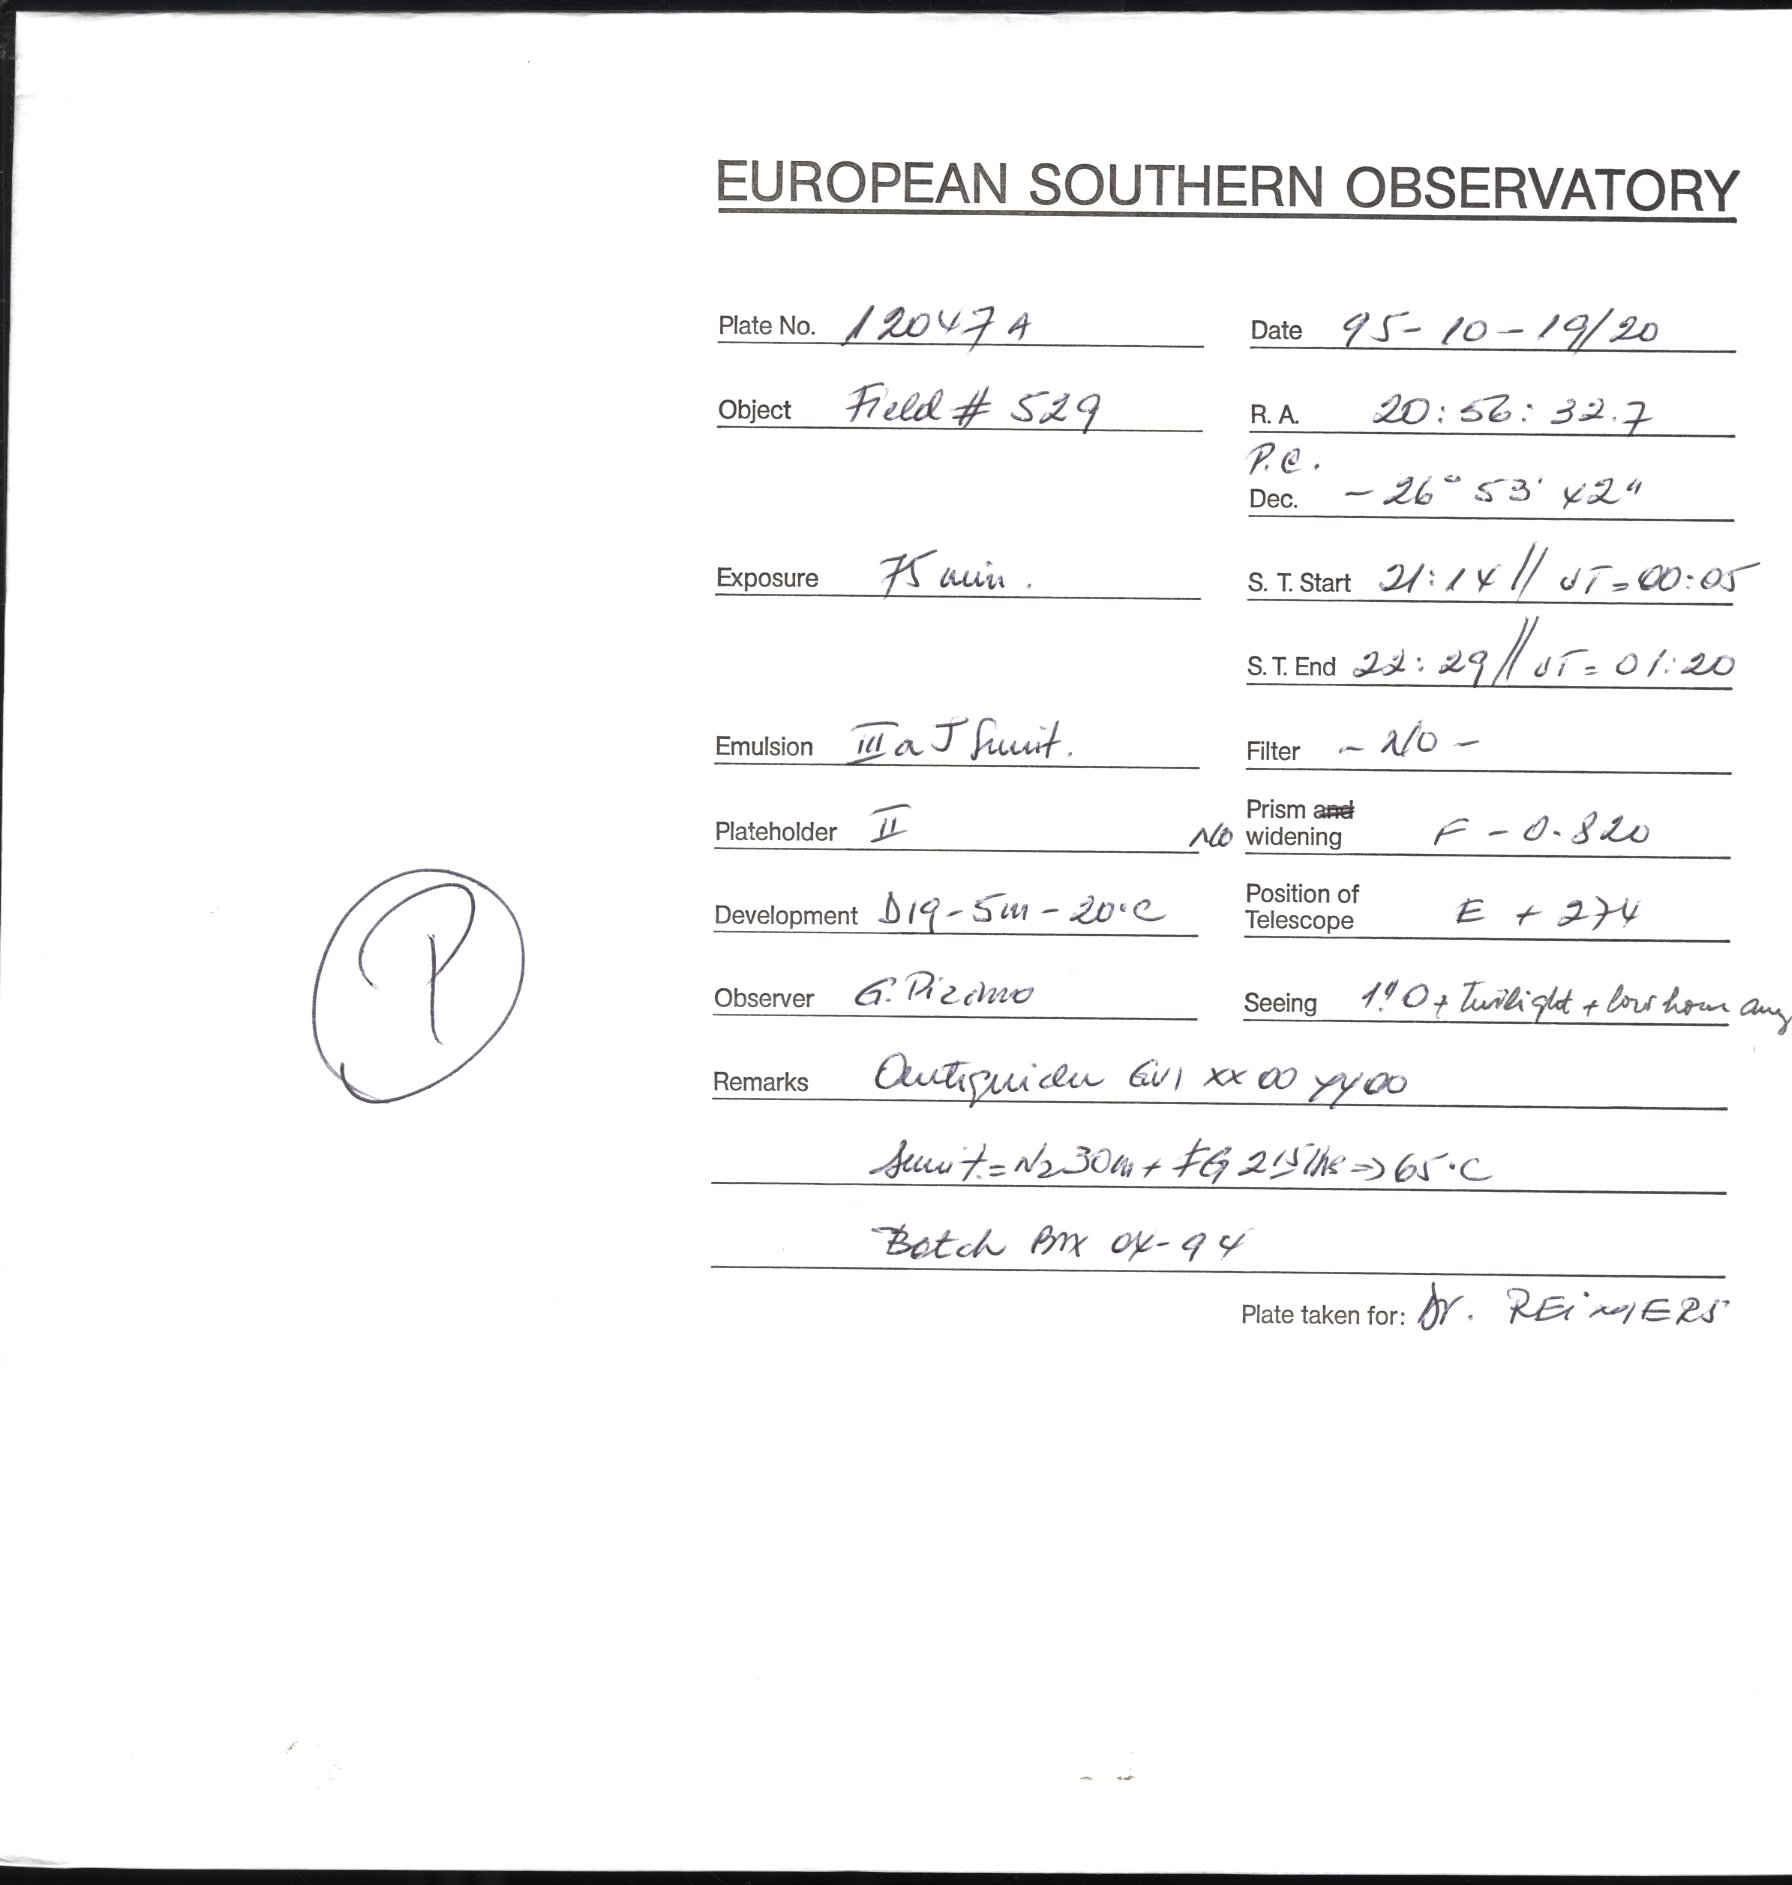 EUROPEAN SOUTHERN OBSERVATORY
Plate No. 12047 A Date 95-10-19/20
Object Field # 529 R. A. 20:56:32.7
P.C.
Dec. - 26° 53' 42"
Exposure 75 min. S. T. Start 21:14 // UT=00:05
S. T. End 22:29 // UT=01:20
Emulsion III a J Sensit. Filter - NO -
Plateholder II NO Prism and widening F - 0.820
Development D19-5m-20°C Position of Telescope E + 274
Observer G. Pizarro Seeing 1"0 + Twilight + low hour ang
Remarks GV1 XX 00 YY 00
Sensit.=N2 30m + FG => 65°C
Batch 04-94
Plate taken for: Dr. REiMERS
P